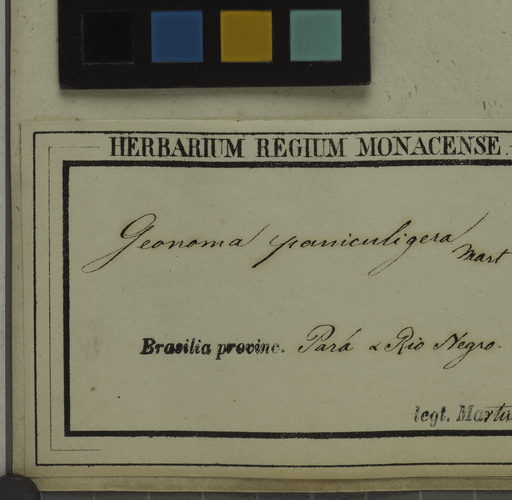 HERBARIUM REGIUM MONACENSE.
Geonoma paniculigera
Mart
Brasilia provinc. Pará & Rio Negro.
legt. Martiu